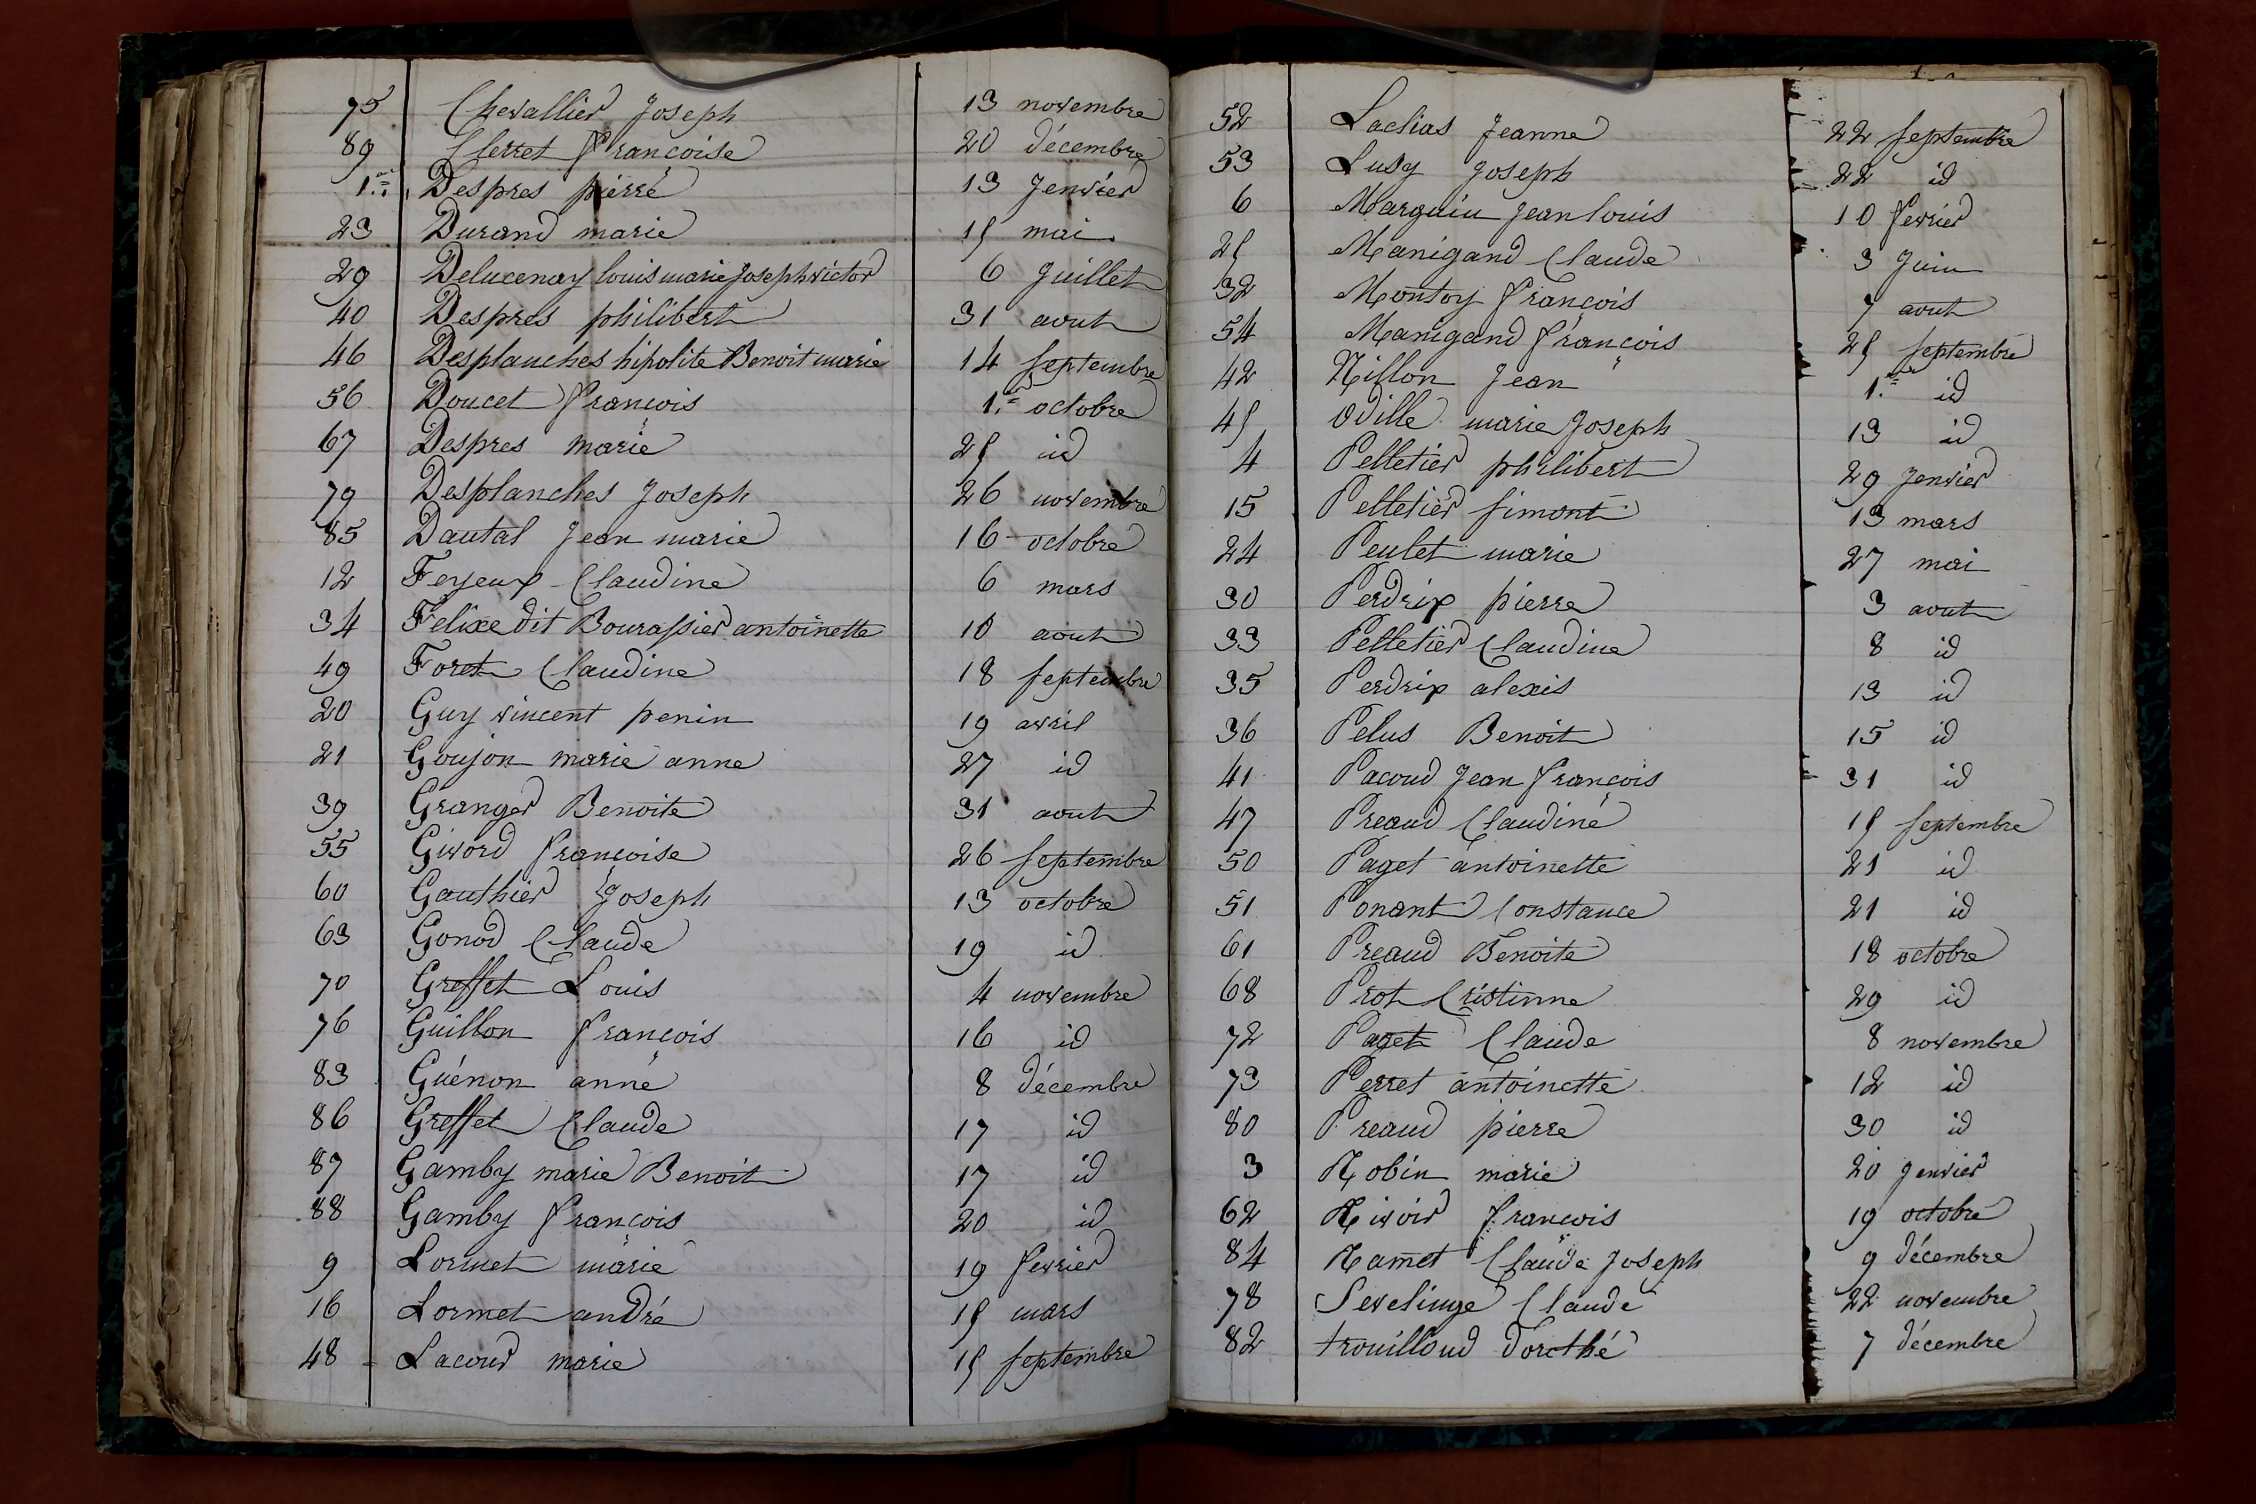 75 Chevallier Joseph 13 novembre
89 Clerret françoise 20 décembre
1.er Despres pierre 13 Jenvier
23 Durand marie 15 mai
29 Delucenay louis marie Joseph victor 6 Juillet
40 Despres philibert 31 aout
46 Desplanches hipolite Benoit marie 14 septembre
56 Doucet françois 1.er octobre
67 Despres marie 25 id
79 Desplanches Joseph 26 novembre
85 Dautal Jean marie 16 octobre
12 Feyeux Claudine 6 mars
34 Felixe dit Bourassier antoinette 10 aout
49 Foret Claudine 18 septembre
20 Guy vincent penin 19 avril
21 Goujon marie anne 27 id
39 Granger Benoite 31 aout
55 Givord françoise 26 septembre
60 Gauthier Joseph 13 octobre
63 Gonod Claude 19 id
70 Greffet Louis 4 novembre
76 Guillon françois 16 id
83 Guénon anne 8 décembre
86 Greffet Claude 17 id
87 Gamby marie Benoit 17 id
88 Gamby françois 20 id
9 Lormet marie 19 fevrier
16 Lormet andré 15 mars
48 Lacour marie 15 septembre
52 Laclias Jeanne 22 septembre
53 Lusy Joseph 22 id
6 Marguin Jean louis 10 fevrier
25 Manigand Claude 3 Juin
32 Montoy françois 7 aout
54 Manigand françois 25 septembre
42 Nillon Jean 1.er id
45 Odille marie Joseph 13 id
4 Pelletier philibert 29 Jenvier
15 Pelletier simont 13 mars
24 Peulet marie 27 mai
30 Perdrix pierre 3 aout
33 Pelletier Claudine 8 id
35 Perdrix alexis 13 id
36 Pelus Benoit 15 id
41 Pacoud Jean françois 31 id
47 Preaud Claudine 15 septembre
50 Paget antoinette 21 id
51 Ponant Constance 21 id
61 Preaud Benoite 18 octobre
68 Prot Cristinne 29 id
72 Paget Claude 8 novembre
73 Perret antoinette 12 id
80 Preaud pierre 30 id
3 Robin marie 20 Jenvier
62 Rivoir françois 19 octobre
84 Ramet Claude Joseph 9 décembre
78 Sevelinge Claude 22 novembre
82 trouilloud dorothé 7 décembre